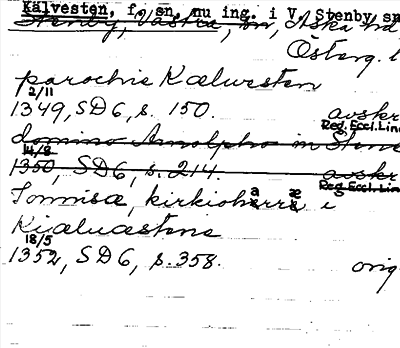 Kälvesten, f. sn, nu ing. i V. Stenby sn
Stenby, Västra, sn, Aska hd
Österg. l
parochie Kælwesten
2/11
1349, SD6, s. 150. avskr
Reg. Eccl. Linc
domino Arnolpho in Stene
14/8
1350, SD6, s. 214. avskr
Reg. Eccl. Linc
Tommisæ, kirkiohærra i
a æ
Kiælwæstene
18/5
1352, SD6, s. 358. orig